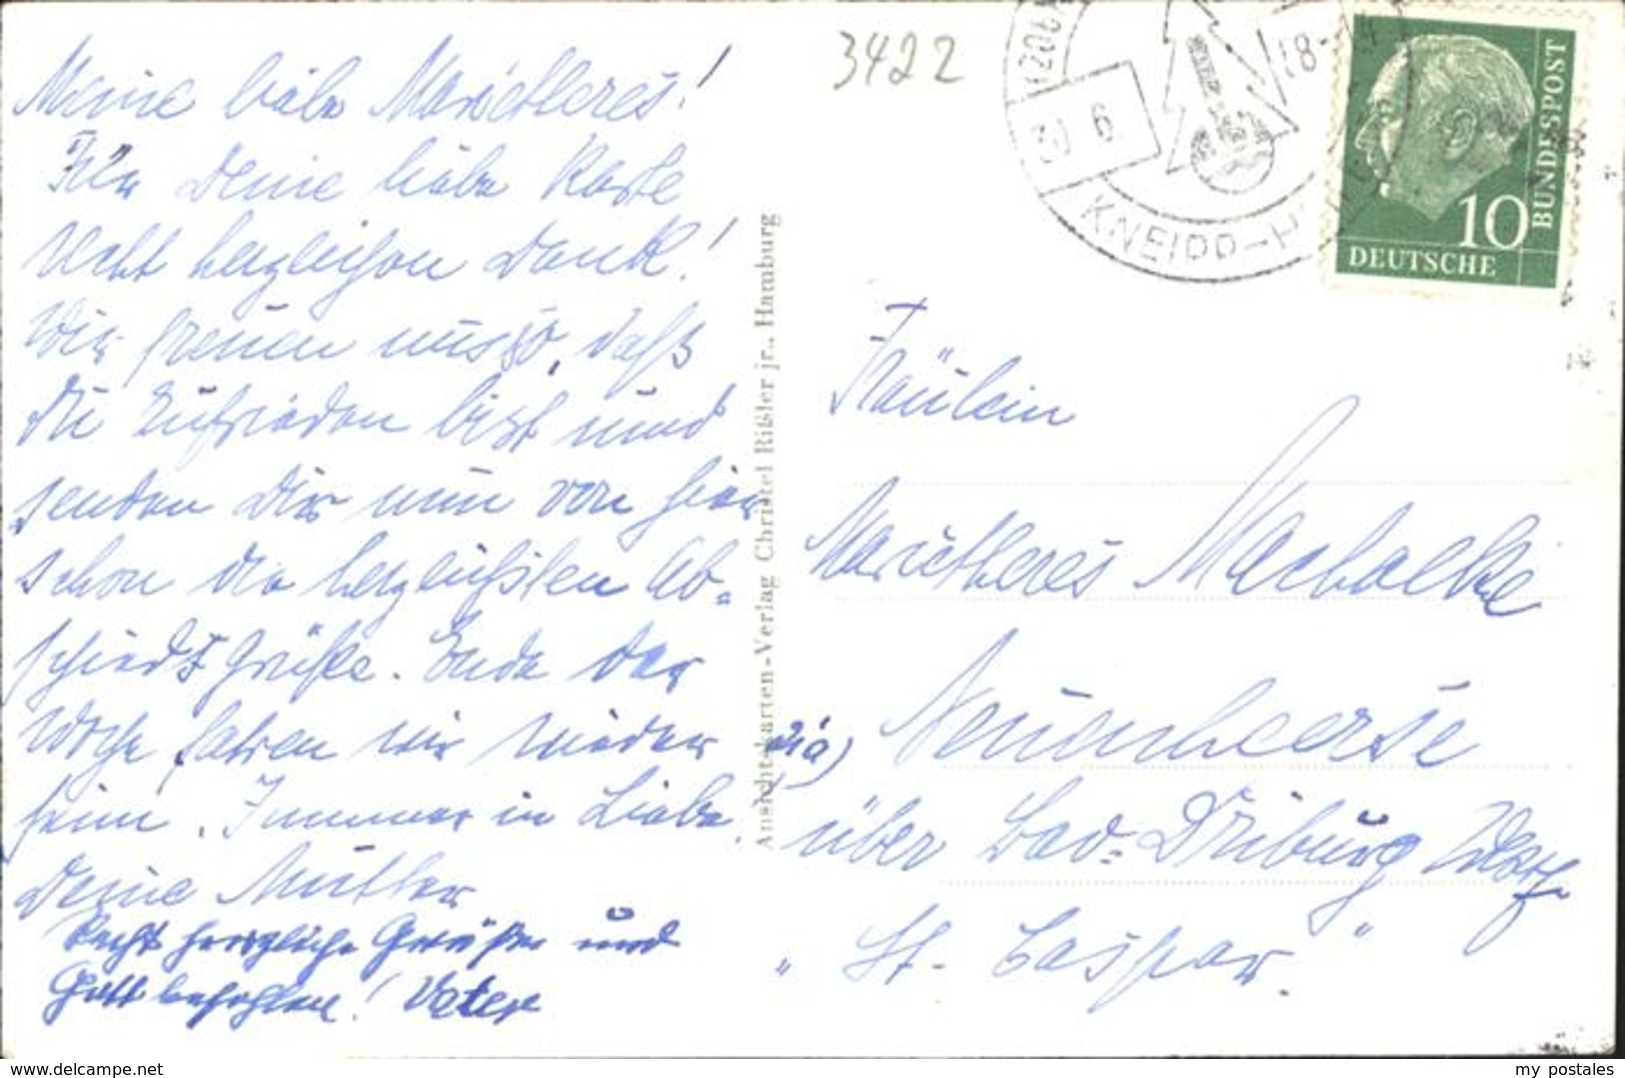 Meine liebe Marietheres!
Für Deine liebe Karte
recht herzlichen Dank!
Wir freuen uns so, daß
Du zufrieden bist und
senden Dir nun von hier
schon die herzlichsten Ab=
schieds Grüße. Ende der
Woche fahren wir wieder
heim. Immer in Liebe
Deine Mutter
Recht herzliche Grüße und
Gott befohlen! Vater
Ansichtskarten-Verlag Christel Rißler jr., Hamburg
3422
6
18-
KNEIPP-H
10
DEUTSCHE
BUNDESPOST
Fräulein
Marietheres
Neuenheerse
über Bad=Driburg Westf
"St. Caspar."
delcampe.net
my_postales